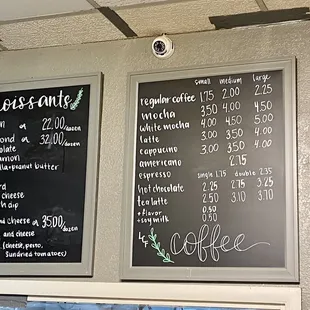 oissants
22.00/dozen
ond
32.00/dozen
olate
amon
lla+peanut butter
rd
cheese
h dip
nd cheese
35.00/dozen
and cheese
(cheese, pesto,
Sundried tomatoes)
small medium large
regular coffee 1.75 2.00 2.25
mocha 3.50 4.00 4.50
white mocha 4.00 4.50 5.00
latte 3.00 3.50 4.00
capucino 3.00 3.50 4.00
americano 2.75
espresso single 1.75 double 2.35
hot chocolate 2.25 2.75 3.25
tea latte 2.50 3.10 3.70
+flavor 0.50
+soy milk 0.50
Coffee